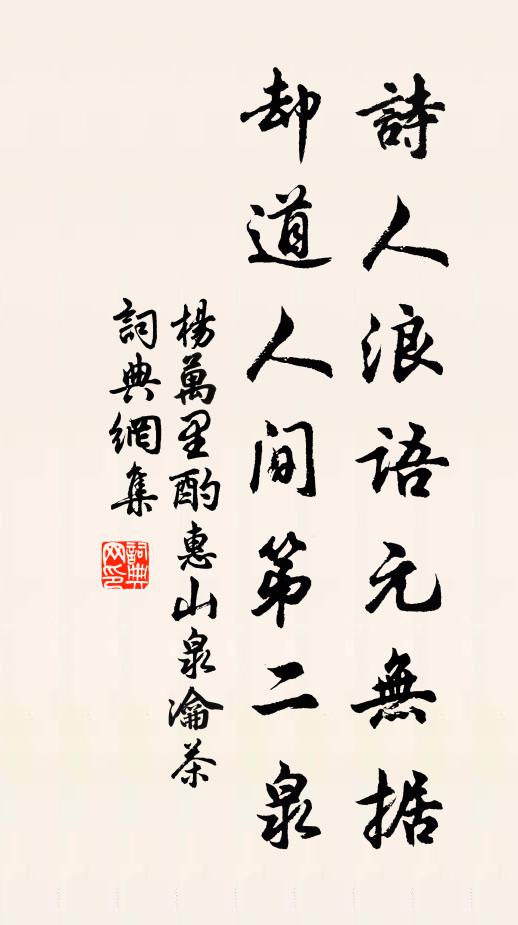 詩人浪語元無据
却道人间第二泉
楊萬里酌惠山泉瀹茶
詞典網集
詞典
网印